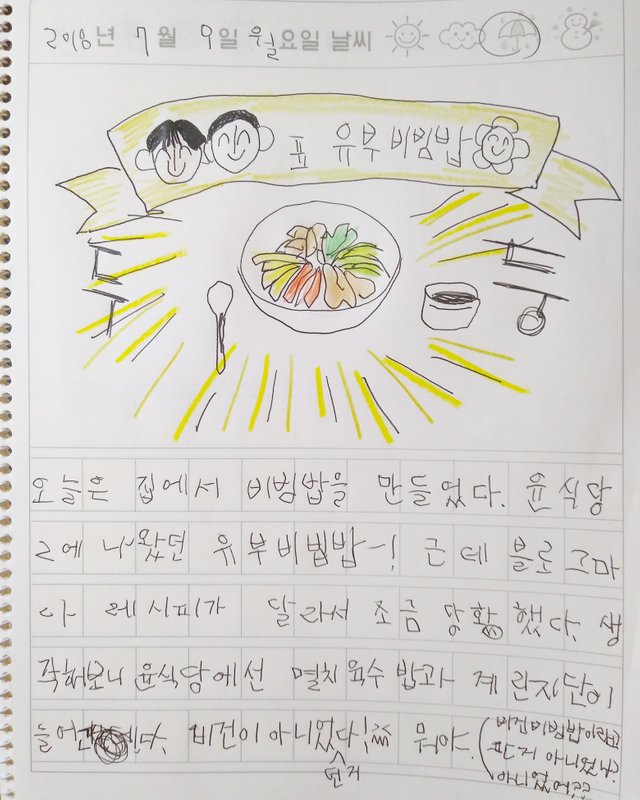 2018년 7월 9일 월요일 날씨
표 유부비빔밥
오늘은 집에서 비빔밥을 만들었다. 윤식당
2에 나왔던 유부비빔밥~! 근데 블로그마
다 레시피가 달라서 조금 당황했다. 생
각해보니 윤식당에선 멸치육수 밥과 계란지단이
들어 다. 비건이 아니었다! 뭐야.
던거
(비건비빔밥이라고
판게 아니었나?
아니었어??